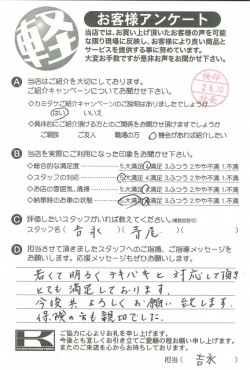 軽
お客様アンケート
当店では、お買い上げ頂いたお客様の声を可能
な限り現場に反映し、お客様により良い商品と
サービスを提供する事に努めています。
大変お手数ですが是非お声をお聞かせ下さい。
検印
2.6.10
Ⓐ 当店はご紹介を大切にしております。
ご紹介キャンペーンについてお聞かせ下さい。
◇カミタケご紹介キャンペーンのご説明はありましたでしょうか
はい いいえ
◇具体的にご紹介頂ける方とのご関係をお聞かせ頂けますでしょうか
ご親族 ご友人 職場の方 機会があれば紹介したい
Ⓑ 当店を実際にご利用になった印象をお聞かせ下さい。
◇総合的な満足度 5.大満足 4.満足 3.ふつう 2.やや不満 1.不満
◇スタッフの対応 5.大満足 4.満足 3.ふつう 2.やや不満 1.不満
◇お店の雰囲気、清掃 5.大満足 4.満足 3.ふつう 2.やや不満 1.不満
◇納車時のお車の状態 5.大満足 4.満足 3.ふつう 2.やや不満 1.不満
Ⓒ 評価したいスタッフがいれば教えてください。(複数回答可)
スタッフ名( 吉永 )( 寺尾 )
Ⓓ 担当させて頂きましたスタッフへのご指摘、ご指導メッセージを
お願いします。応援メッセージもぜひお願いします。
若くて明るくテキパキと対応して頂き
とても満足しております。
今後共よろしくお願い致します。
保険の方も親切でした。
ご協力に心よりお礼を申し上げます。
今後とも宜しくお引き立てご愛顧の程お願い申し上げます。
またのご来店を心からお待ちしております。
担当( 吉永 )